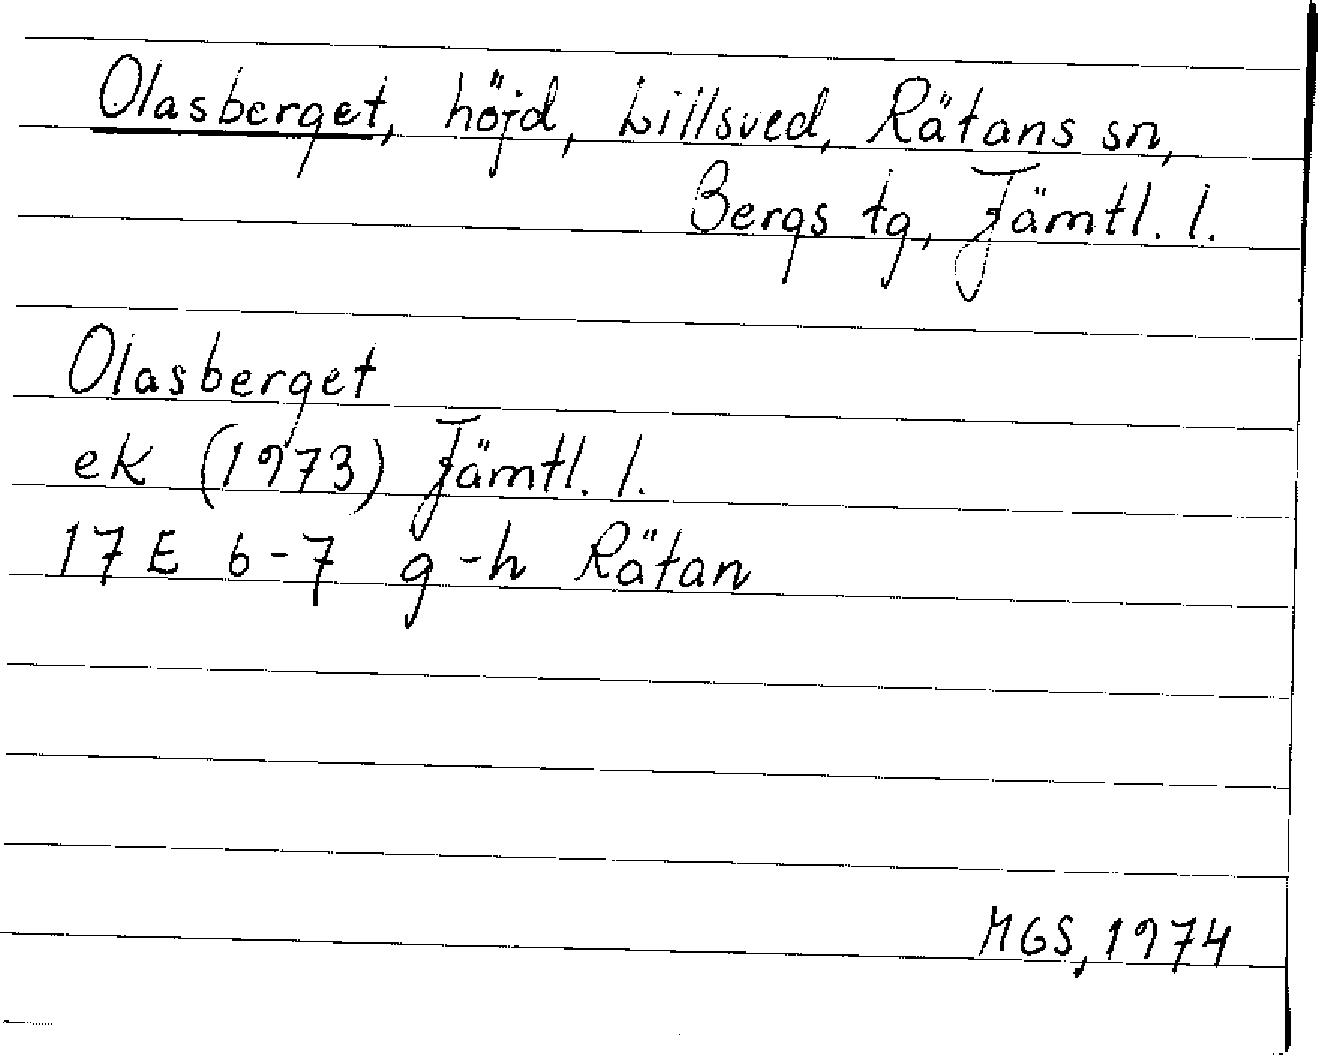 Olasberget, höjd, Lillsved, Rätans sn,
Bergs tg, Jämtl. l.
Olasberget
ek (1973) Jämtl. l.
17 E 6-7 g-h Rätan
MGS, 1974